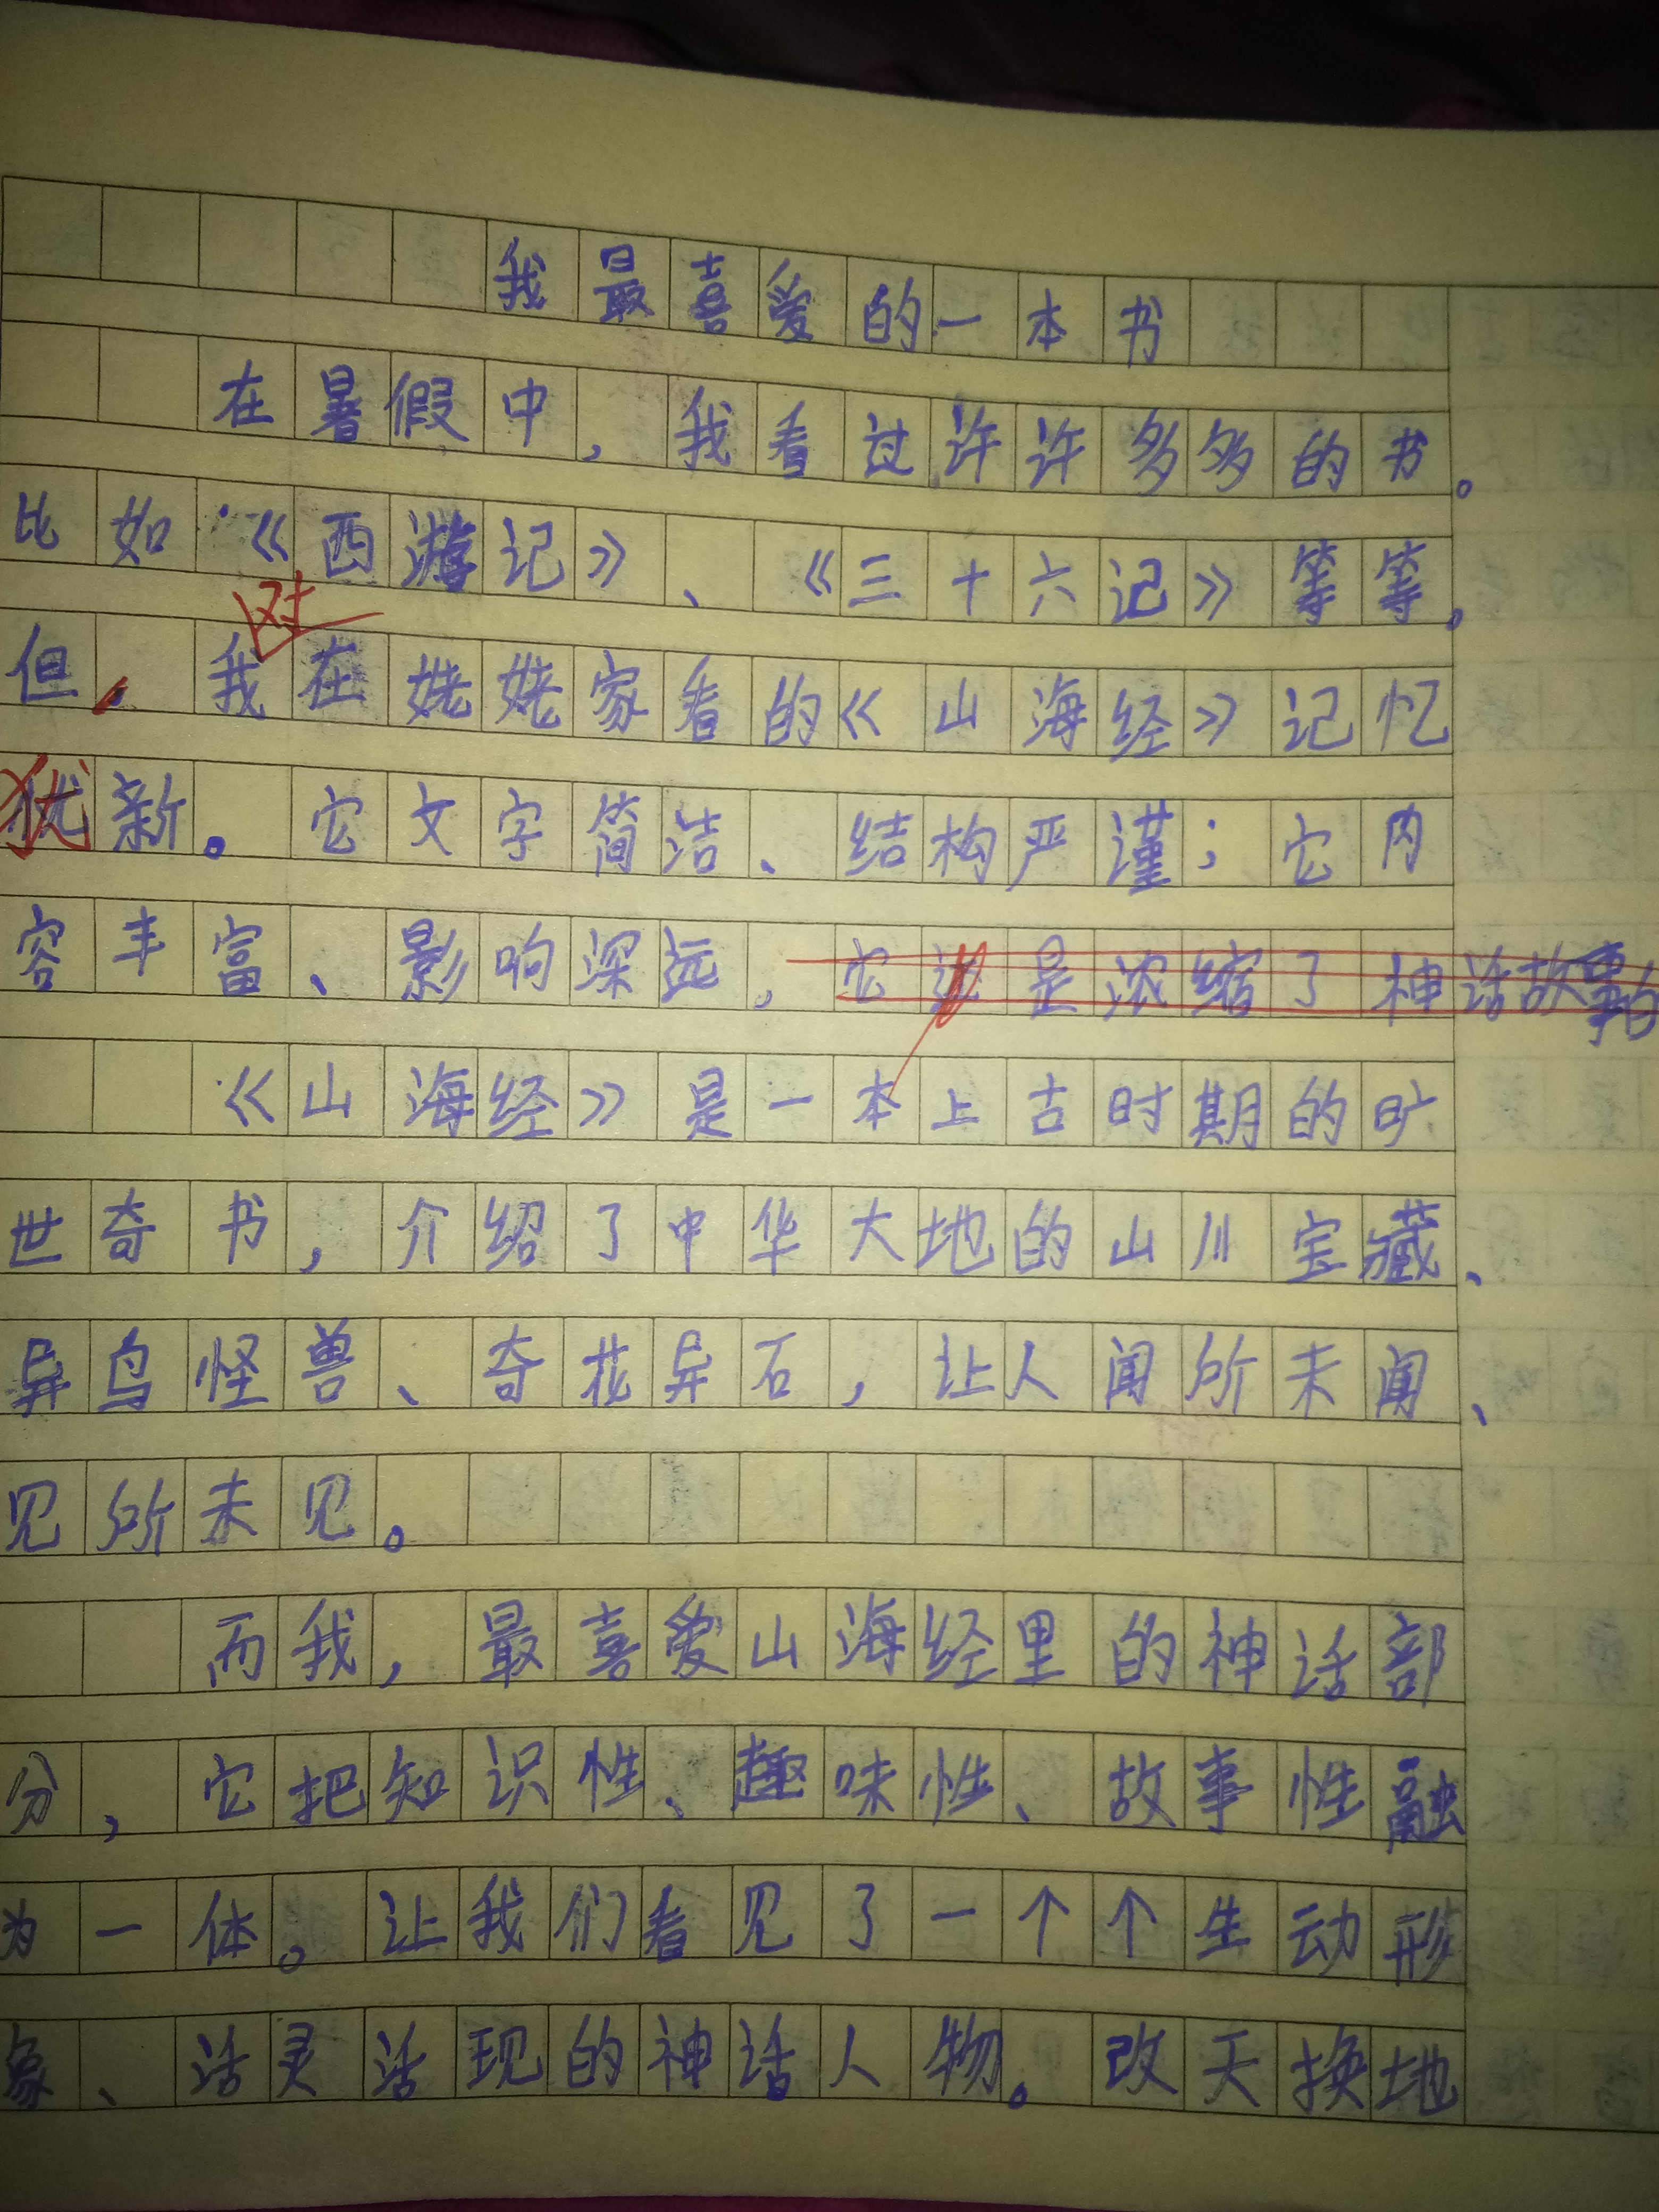 我最喜爱的一本书
在暑假中，我看过许许多多的书。
比如《西游记》、《三十六记》等等。
对
但，我在姥姥家看的《山海经》记忆
犹新。它文字简洁、结构严谨；它内
容丰富、影响深远，它还是浓缩了神话故事的
《山海经》是一本上古时期的旷
世奇书，介绍了中华大地的山川宝藏、
异鸟怪兽、奇花异石，让人闻所未闻、
见所未见。
而我，最喜爱山海经里的神话部
分，它把知识性、趣味性、故事性融
为一体。让我们看见了一个个生动形
象、活灵活现的神话人物。改天换地